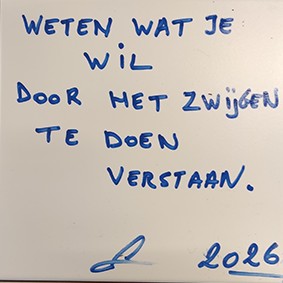 WETEN WAT JE
WIL
DOOR HET ZWIJGEN
TE DOEN
VERSTAAN.
2026